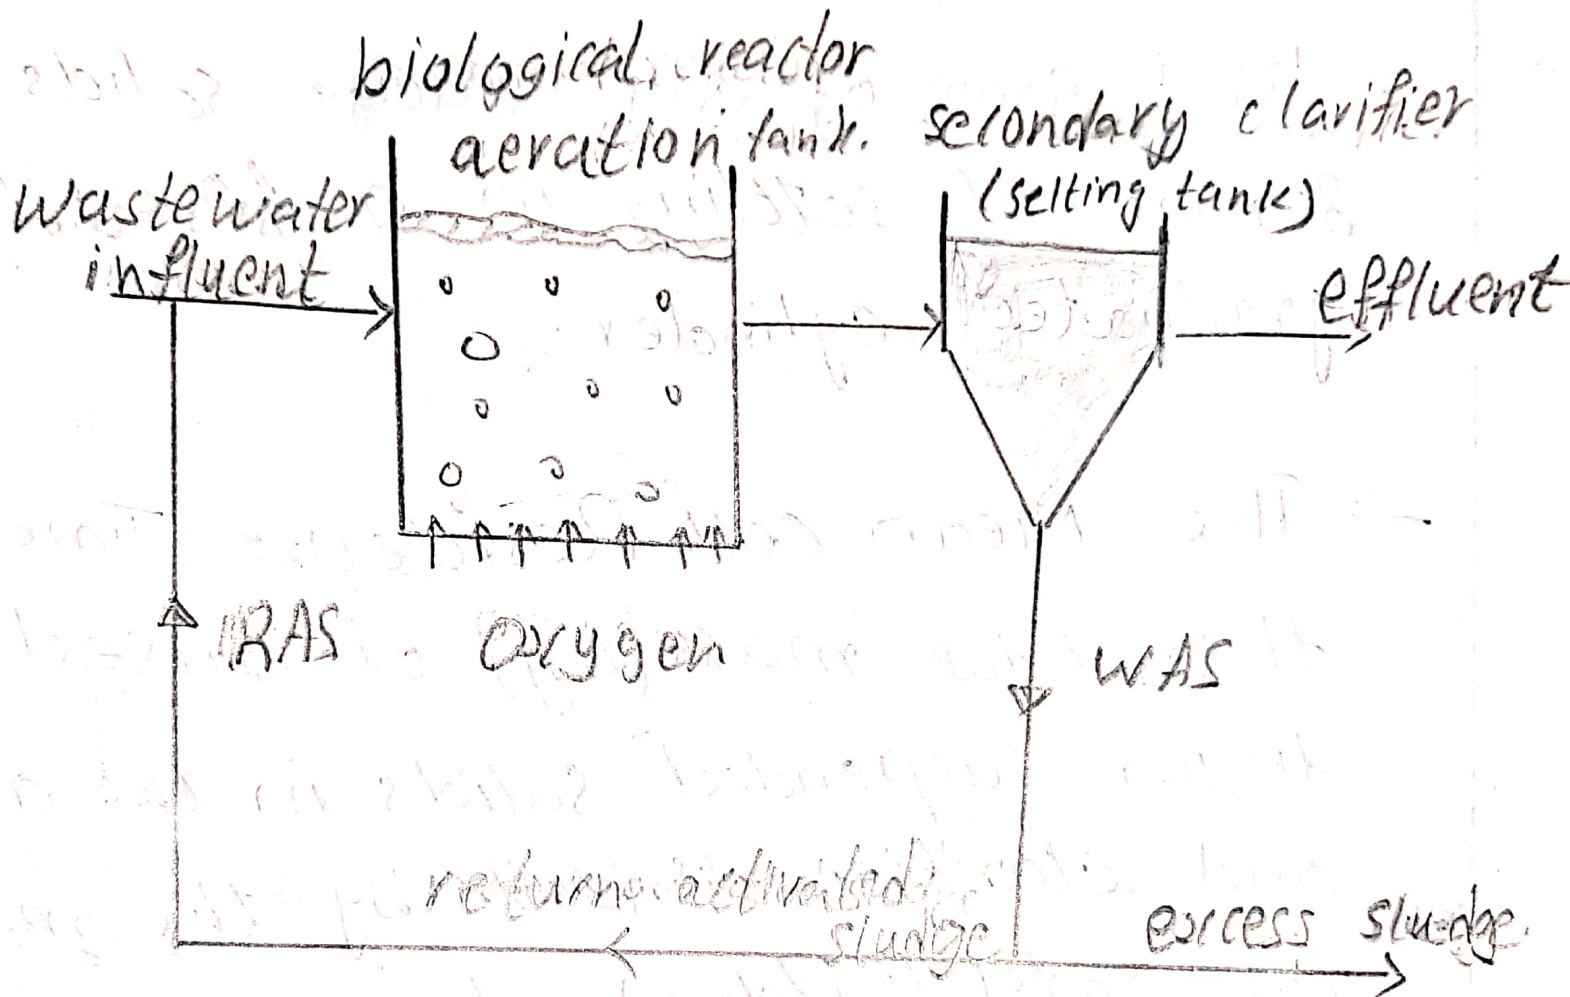 biological reactor
aeration tank.
secondary clarifier
(selting tank)
wastewater
influent
effluent
RAS
oxygen
WAS
return activated
sludge
excess sludge.